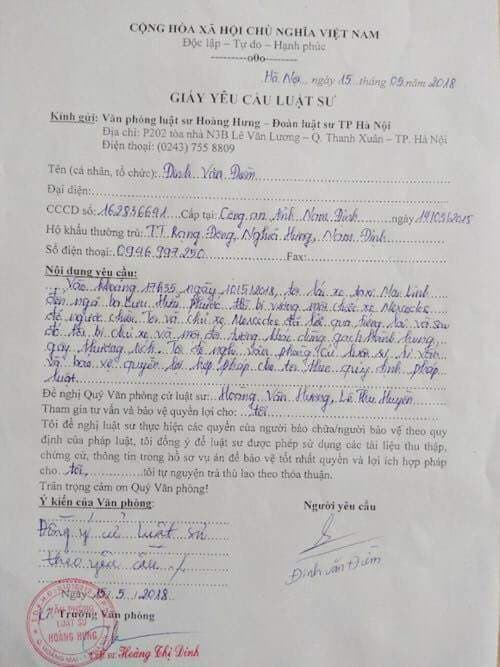 CỘNG HÒA XÃ HỘI CHỦ NGHĨA VIỆT NAM
Độc lập – Tự do – Hạnh phúc
----------o0o----------
Hà Nội, ngày 15 tháng 05 năm 2018
GIẤY YÊU CẦU LUẬT SƯ
Kính gửi: Văn phòng luật sư Hoàng Hưng – Đoàn luật sư TP Hà Nội
Địa chỉ: P202 tòa nhà N3B Lê Văn Lương – Q. Thanh Xuân – TP. Hà Nội
Điện thoại: (0243) 755 8809
Tên (cá nhân, tổ chức): Đinh Văn Điềm
Đại diện:
CCCD số: 162836691 Cấp tại: Công an tỉnh Nam Định ngày
Hộ khẩu thường trú: TT. Rạng Đông, Nghĩa Hưng, Nam Định
Số điện thoại: 0946.997.250 Fax:
Nội dung yêu cầu:
Vào khoảng 17h35, ngày 10/5/2018, tôi lái xe taxi Mai Linh
đến ngã ba Lưu Hữu Phước thì bị vướng một chiếc xe Mercedes
đỗ ngược chiều. Tôi và chủ xe Mercedes đã lời qua tiếng lại và sau
đó thì bị chủ xe và một đối tượng khác dùng gạch hành hung,
gây thương tích. Tôi đề nghị văn phòng cử luật sư tư vấn
và bảo vệ quyền lợi hợp pháp cho tôi theo quy định pháp
luật.
Đề nghị Quý Văn phòng cử luật sư: Hoàng Văn Hướng, Lê Thu Huyền
Tham gia tư vấn và bảo vệ quyền lợi cho: tôi
Tôi đề nghị luật sư thực hiện các quyền của người bào chữa/người bảo vệ theo quy
định của pháp luật, tôi đồng ý để luật sư được phép sử dụng các tài liệu thu thập,
chứng cứ, thông tin trong hồ sơ vụ án để bảo vệ tốt nhất quyền và lợi ích hợp pháp
cho tôi, tôi tự nguyện trả thù lao theo thỏa thuận.
Trân trọng cảm ơn Quý Văn phòng!
Ý kiến của Văn phòng: Người yêu cầu
Đồng ý cử luật sư
theo yêu cầu
Đinh Văn Điềm
Ngày 15/5/2018
Trưởng Văn phòng
VĂN PHÒNG
LUẬT SƯ
HOÀNG HƯNG
Hoàng Thị Dinh